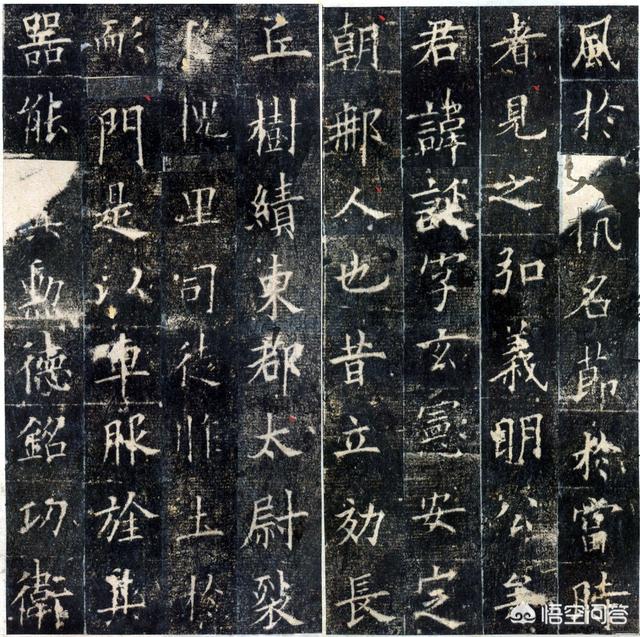 風於抗名節於當時
者見之弘義明公矣
君諱誕字玄憲安定
朝䣕人也昔立効長
丘樹績東郡太尉裂
槐里司徒胙土於
耏門是以車服旌其
器能其勳德銘功衛
悟空问答